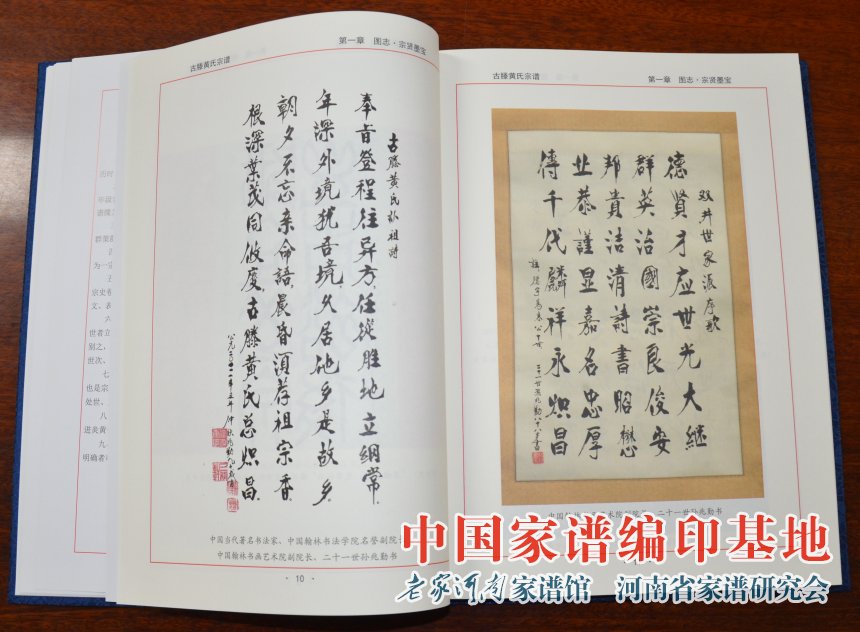 古滕黄氏宗谱
第一章 图志·宗贤墨宝
古滕黄氏朴祖诗
奉旨登程往异方任从胜地立纲常
年深外境犹吾境久居他乡是故乡
朝夕不忘亲命语晨昏须荐祖宗香
根深叶茂同攸度古滕黄氏总炽昌
中国当代著名书法家、中国翰林书法学院名誉副院长
中国翰林书画艺术院副院长、二十一世孙兆勤书
·10·
古滕黄氏宗谱
第一章 图志·宗贤墨宝
双井世家派序歌
德贤才应世光大继
群英治國崇良俊安
邦貴洁清詩書昭懋
业恭謹显嘉名忠厚
傳千代麟祥永炽昌
二十一世孙兆勤书
中国家谱编印基地
老家河南家谱馆 河南省家谱研究会